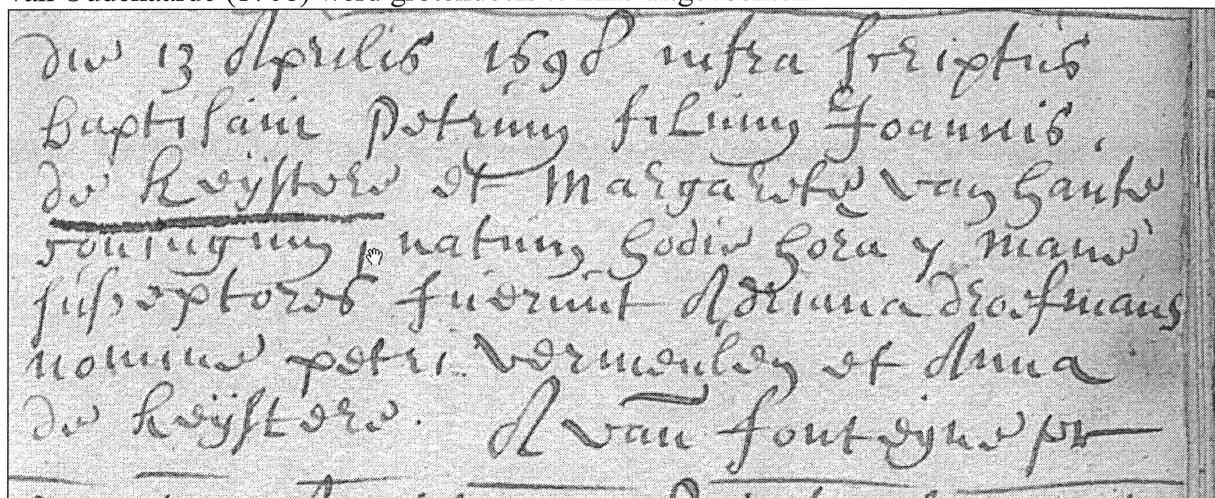 van Oudenaarde (1708) werd grotendeels te niet aangevochten
die 13 Aprilis 1698 infra scriptus
baptisavi Petrum filium Joannis
de Keijstere et Margarete van haute
coniugum, natum hodie hora y mane
susceptores fuerunt Adriana
nomine petri vermeulen et Anna
de Keijstere. A van fonteyne pr